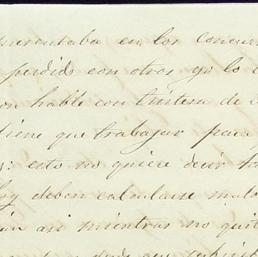 presentaba en los concur
perdido con otros yo lo
hable con tristesa de
tiene que trabajar para
: esto no quiere decir
deben calcularse mal
asi mientras no quit